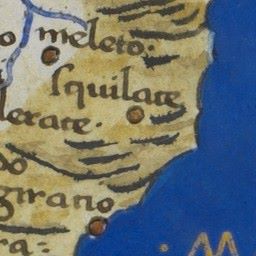 o meleto·
squilace
lerate·
do
giratio
ra:
M